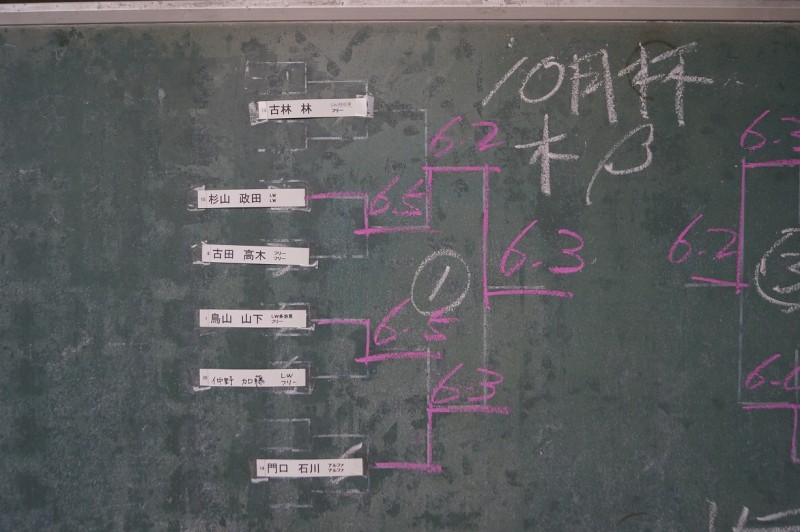 10月杯
木β
古林 林 フリー
6.2
6.3
杉山 政田 LW LW
6.5
6.3
6.2
古田 高木 フリー フリー
①
鳥山 山下 LW多治見 フリー
6.5
仲野 加藤 LW フリー
6.3
門口 石川 アルファ アルファ